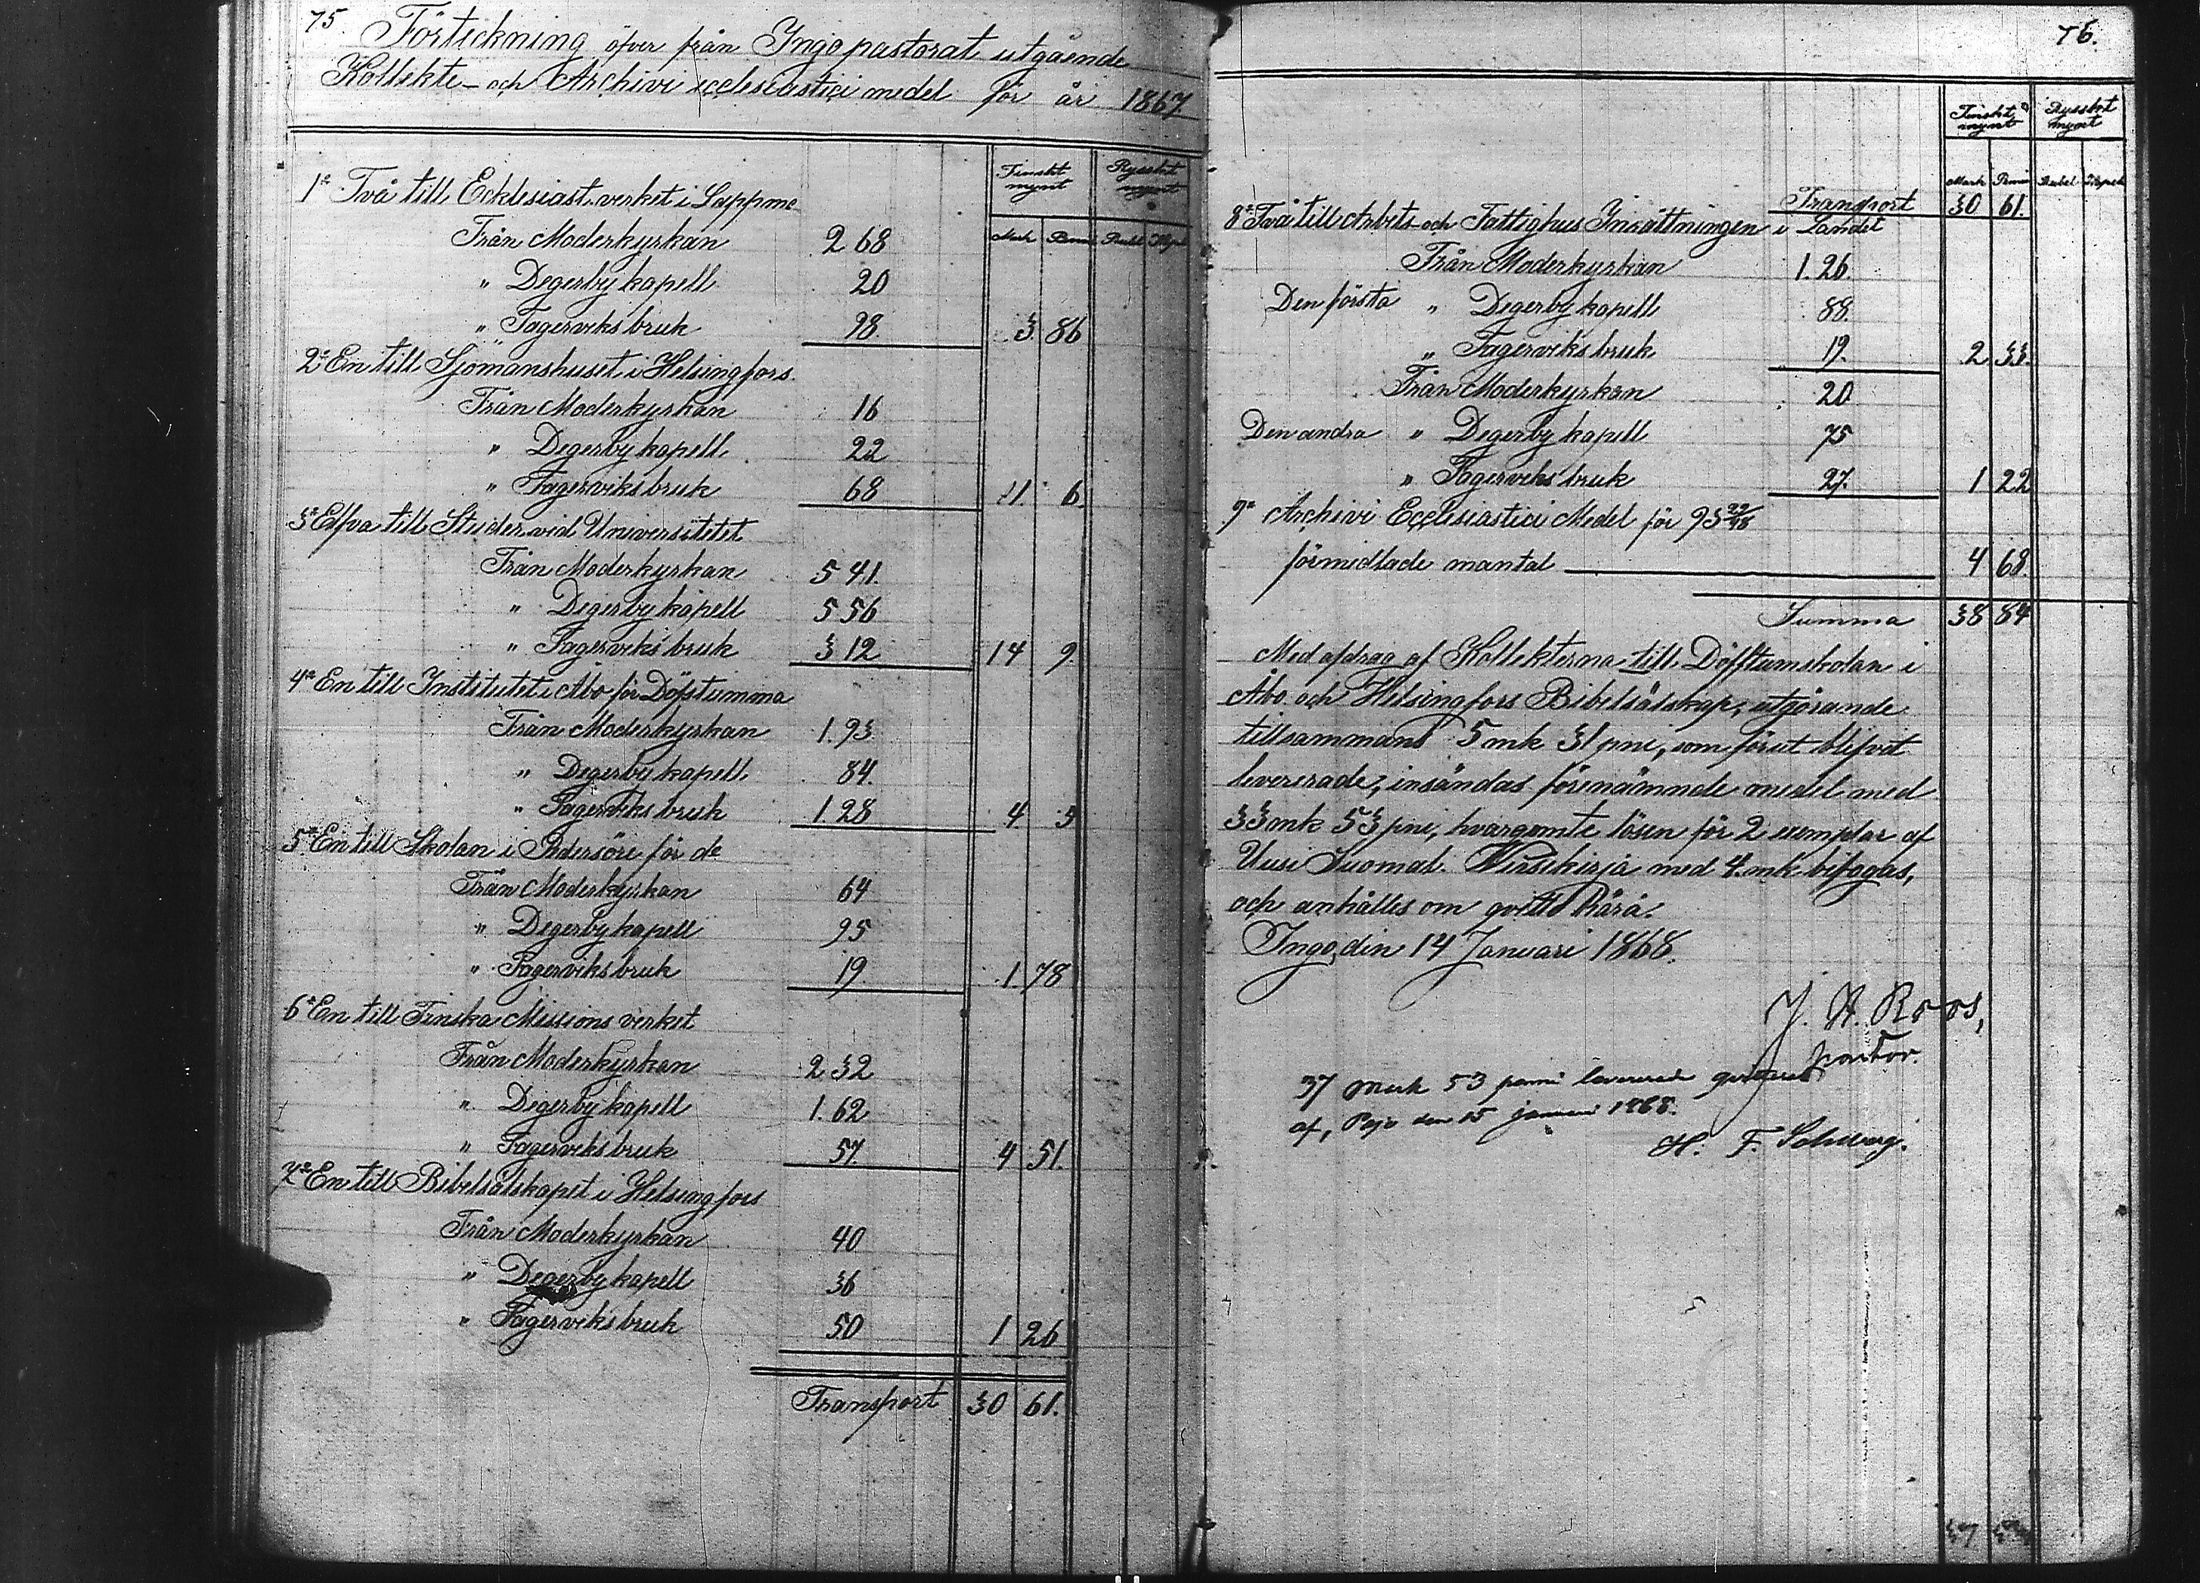 75.
Förteckning öfver från Ingo pastorat utgående
Kollekte- och Archivi ecclesiastici medel för år 1867
Finskt mynt Ryskt mynt
Mark Penni Rubel Kopek
1o Två till Ecklesiast. verket i Lappme
Från Moderkyrkan 2 68
" Degerby kapell 20
" Fagerviks bruk 98. 3. 86
2o En till Sjömanshuset i Helsingfors.
Från Moderkyrkan 16
" Degerby kapell 22
" Fagerviks bruk 68 1 6.
3o Elfva till Studer. vid Universitetet
Från Moderkyrkan 5 41.
" Degerby kapell 5 56
" Fagerviks bruk 3 12 14 9.
4o En till Institutet i Åbo för Döfstumma
Från Moderkyrkan 1. 93
" Degerby kapell 84.
" Fagerviks bruk 1 28 4 5
5o En till Skolan i Pedersöre för do
Från Moderkyrkan 64
" Degerby kapell 95
" Fagerviks bruk 19. 1. 78
6o En till Finska Missions verket
Från Moderkyrkan 2 32
" Degerby kapell 1. 62
" Fagerviks bruk 57. 4 51.
7o En till Bibelsälskapet i Helsingfors
Från Moderkyrkan 40
" Degerby kapell 36
" Fagerviks bruk 50 1 26
Transport 30 61.
76.
Finskt mynt Rysskt mynt
Mark Penni Rubel Kopek
Transport 30 61.
8o Två till Arbets- och Fattighus Inrättningen i Landet
Från Moderkyrkan 1. 26.
Den första " Degerby kapell 88.
" Fagerviks bruk 19. 2 33.
Från Moderkyrkan 20
Den andra " Degerby kapell 75
" Fagerviks bruk 27. 1 22
9o Archivi Ecclesiastici Medel för 93 29/48
förmedlade mantal 4 68.
Summa 38 84
Med afdrag af Kollekterna till Döfstumskolan i
Åbo och Helsingfors Bibelsälskap, utgörande
tillsammans 5 mk 31 pni, som förut blifvit
levererade, insändas förenämnde medel med
33 mk 53 pni, hvarjemte lösen för 2 exemplar af
Uusi Suomal. Wirsikirja med 4. mk bifogas,
och anhålles om qvitto härå.
Ingo, den 14 Januari 1868.
J. H. Roos,
pastor.
37 mark 53 penni levererade qvitteras
af, Pojo den 15 januari 1868.
H. F.
37